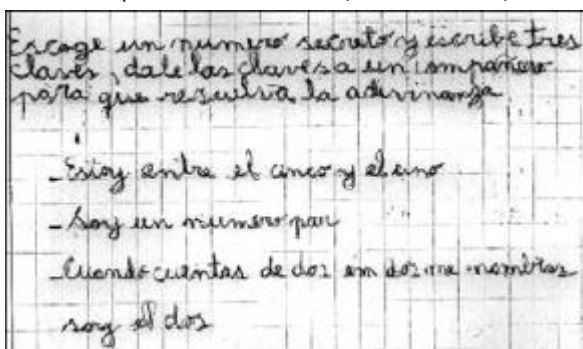 Escoge un numero secreto y escribe tres
claves, dale las claves a un compañero
para que resuelva la adivinanza
- Estoy entre el cinco y el uno
- Soy un numero par
- Cuando cuentas de dos em dos me nombras
soy el dos